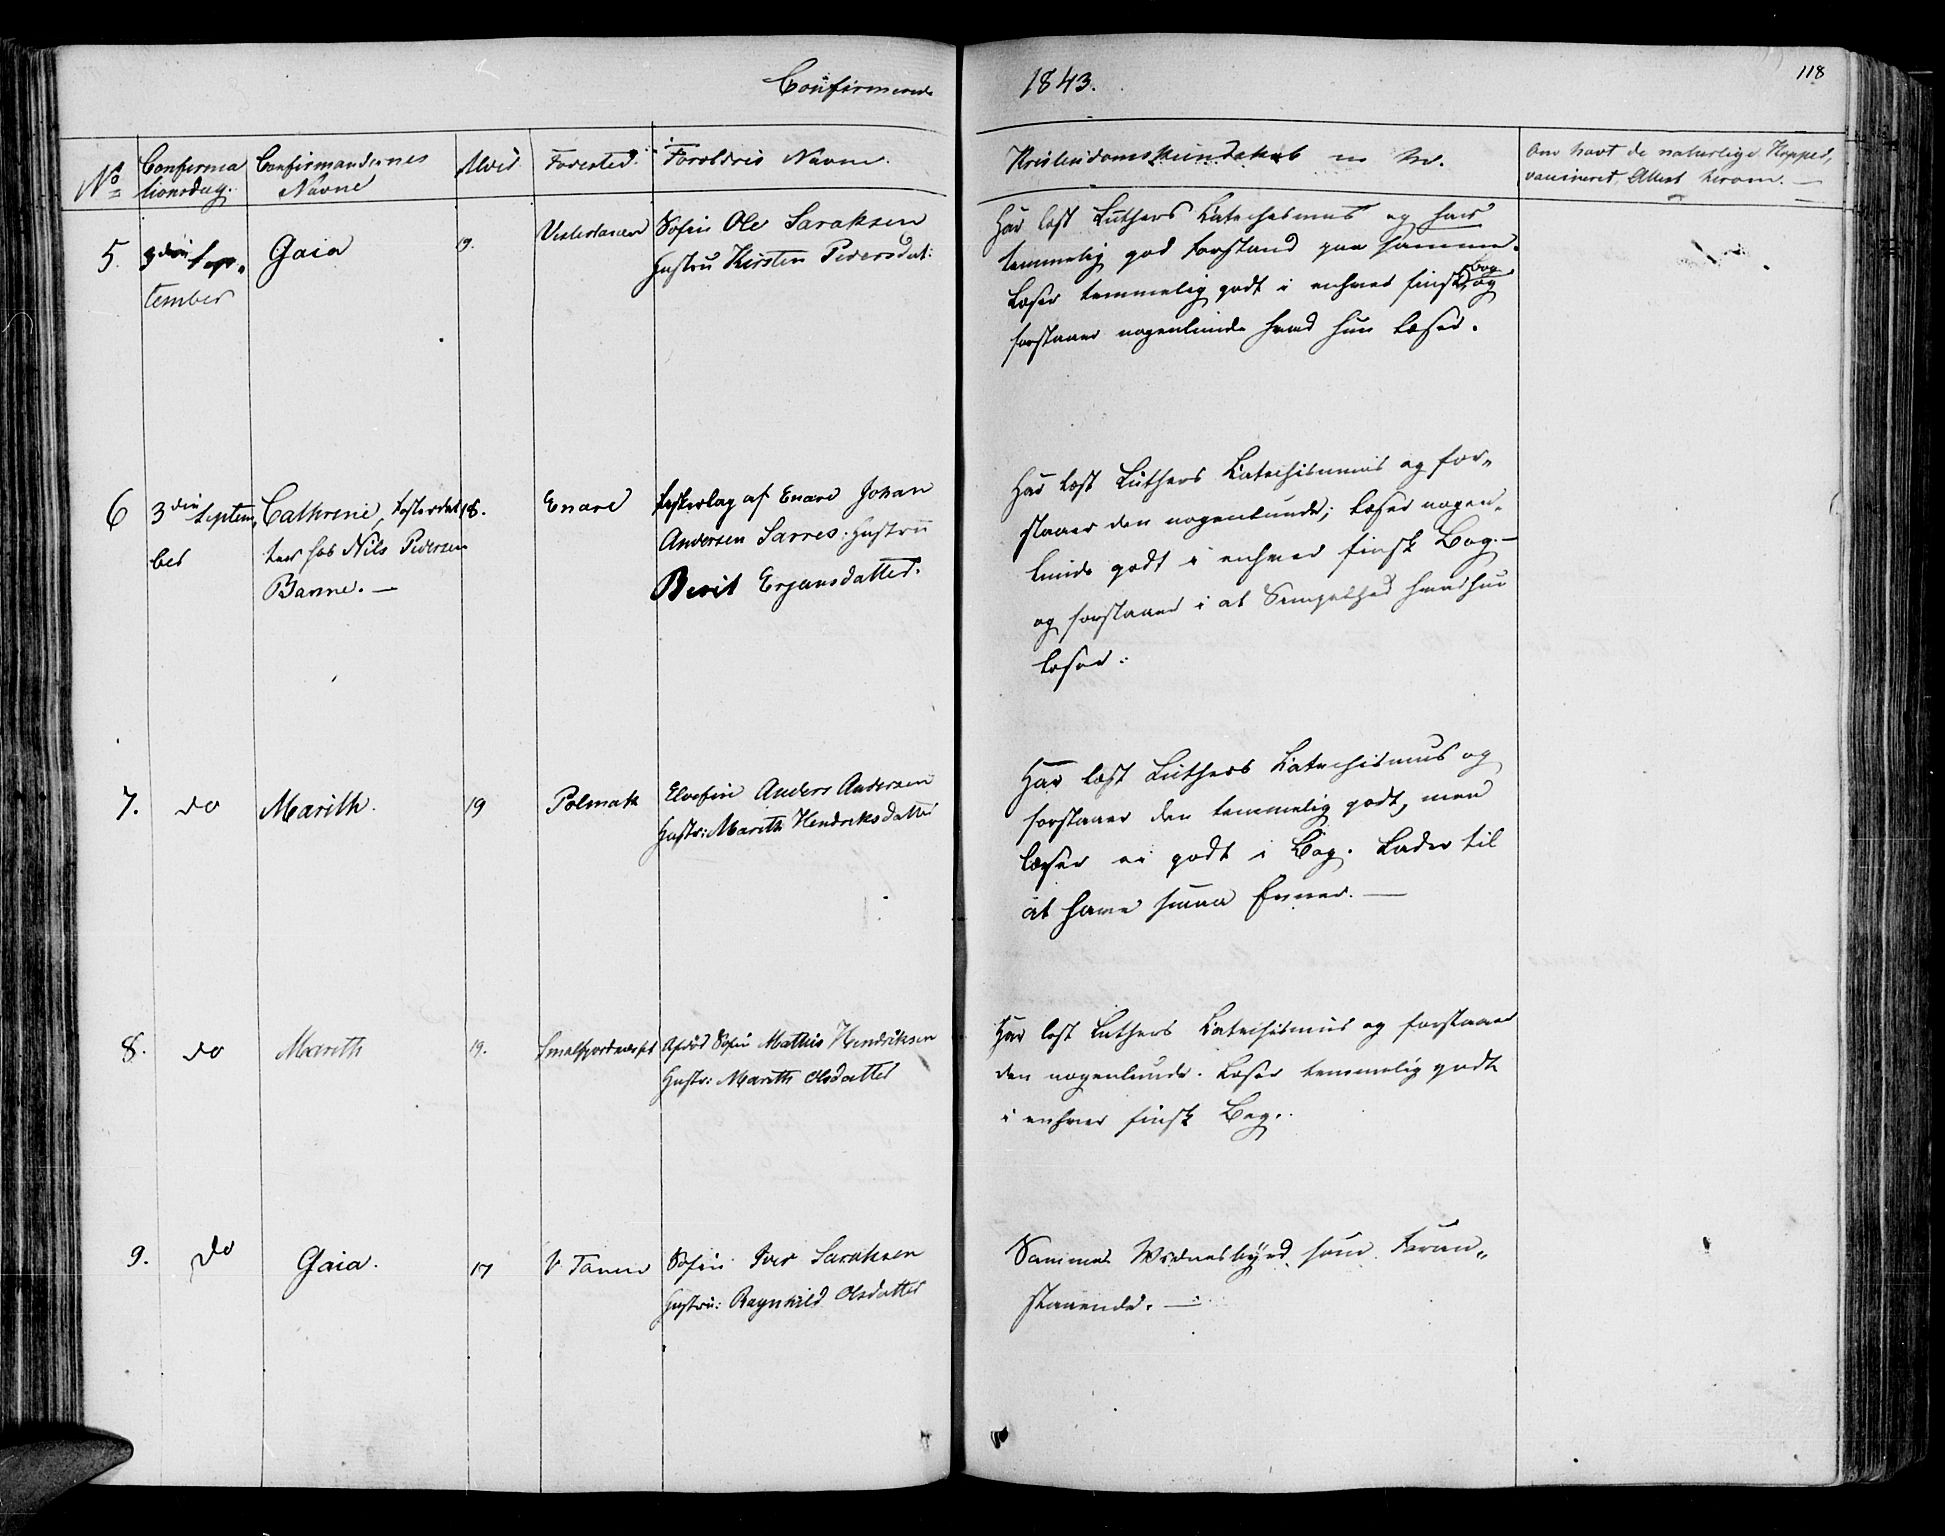 Confirmerede
1843.
118
No
Confirma
tionsdag.
Confirmandernes
Navne
Alder
Fødested.
Forældres Navne.
Kristendomskundskab m. M.
Om havt de naturlige Kopper,
vaccineret, Attest herom. —
5.
3die Sep-
tember
Gaia
19.
Vestertanen
Søfin Ole Saraksen
Hustru Kirsten Pedersdat:
Har læst Luthers Katechismus og har
temmelig god Forstand paa samme.
Læser temmelig godt i enhver finsk Bog og
forstaaer nogenlunde hvad hun læser.
6
3die Septem-
ber
Cathrine, Fosterdat
ter hos Nils Pedersen
Banne. —
18.
Enare
Fiskerlap af Enare Johan
Andersen Sarres. Hustru
Berit Erjansdatter.
Har læst Luthers Katechismus og for-
staaer den nogenlunde; læser nogen-
lunde godt i enhver finsk Bog. —
og forstaaer i al Simpelhed hvad hun
læser.
7.
do
Marith.
19
Polmak
Elvefin Anders Andersen
Hustr: Marith Hendriksdatter
Har læst Luthers Katechismus og
forstaaer den temmelig godt, men
læser ei godt i Bog. Lader til
at have smaa Evner. —
8.
do
Marith
19.
Smalfjordnæsset
Afdød Søfin Mathis Hendriksen
Hustr: Marith Olsdatter
Har læst Luthers Katechismus og forstaaer
den nogenlunde. Læser temmelig godt
i enhver finsk Bog.
9.
do
Gaia.
17
V Tanen
Søfin Iver Saraksen
Hustru: Ragnhild Olsdatter
Sammes Vidnesbyrd som Foran-
staaende. —